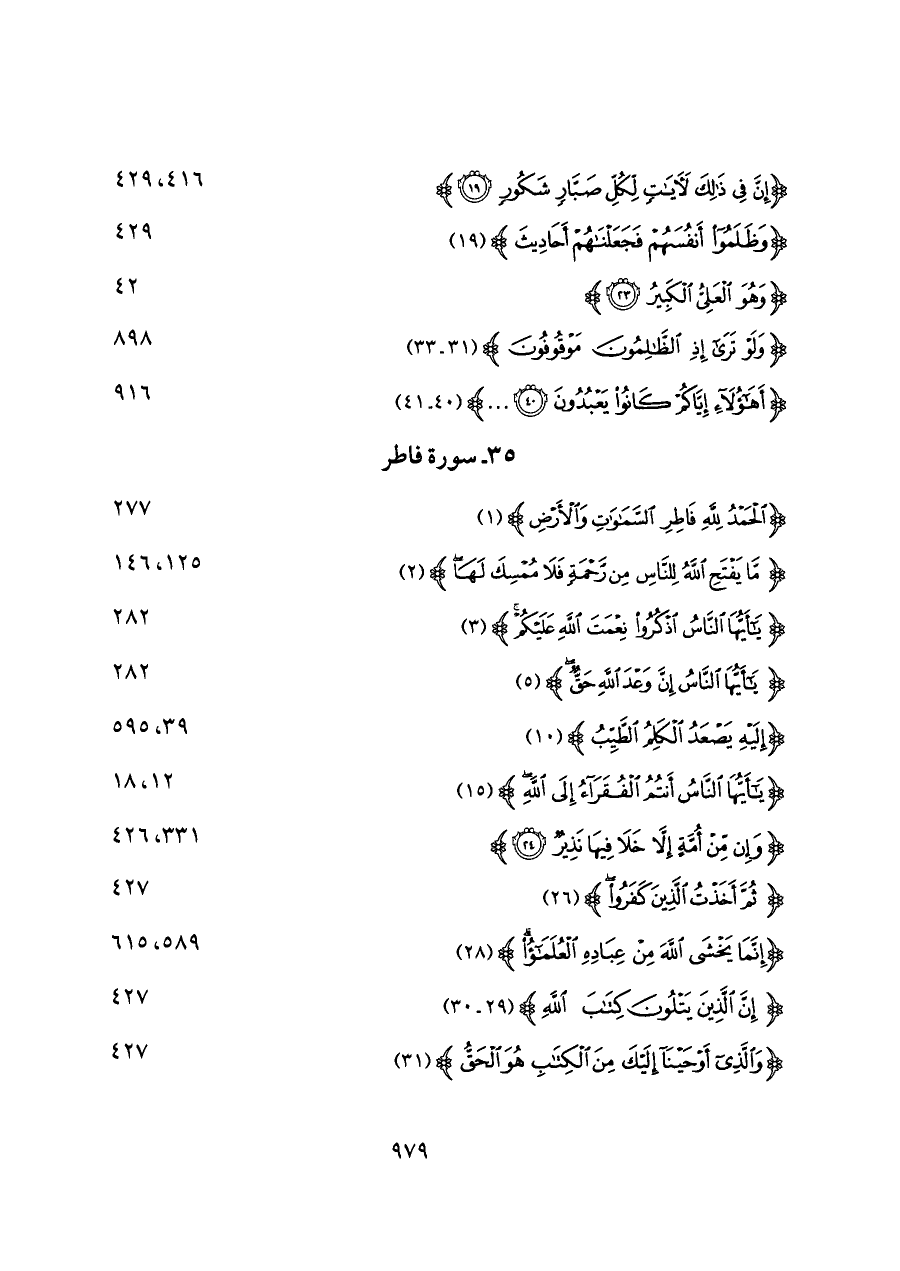 ﴿إِنَّ فِى ذَٰلِكَ لَـَٔايَـٰتٍ لِّكُلِّ صَبَّارٍ شَكُورٍ ١٩﴾ ٤١٦، ٤٢٩
﴿وَظَلَمُوٓا۟ أَنفُسَهُمْ فَجَعَلْنَـٰهُمْ أَحَادِيثَ﴾ (١٩) ٤٢٩
﴿وَهُوَ ٱلْعَلِىُّ ٱلْكَبِيرُ ٢٣﴾ ٤٢
﴿وَلَوْ تَرَىٰٓ إِذِ ٱلظَّـٰلِمُونَ مَوْقُوفُونَ﴾ (٣١ـ٣٣) ٨٩٨
﴿أَهَـٰٓؤُلَآءِ إِيَّاكُمْ كَانُوا۟ يَعْبُدُونَ ٤٠ ...﴾ (٤٠ـ٤١) ٩١٦
٣٥ـ سورة فاطر
﴿ٱلْحَمْدُ لِلَّهِ فَاطِرِ ٱلسَّمَـٰوَٰتِ وَٱلْأَرْضِ﴾ (١) ٢٧٧
﴿مَّا يَفْتَحِ ٱللَّهُ لِلنَّاسِ مِن رَّحْمَةٍ فَلَا مُمْسِكَ لَهَا ۖ﴾ (٢) ١٢٥، ١٤٦
﴿يَـٰٓأَيُّهَا ٱلنَّاسُ ٱذْكُرُوا۟ نِعْمَتَ ٱللَّهِ عَلَيْكُمْ ۚ﴾ (٣) ٢٨٢
﴿يَـٰٓأَيُّهَا ٱلنَّاسُ إِنَّ وَعْدَ ٱللَّهِ حَقٌّ ۖ﴾ (٥) ٢٨٢
﴿إِلَيْهِ يَصْعَدُ ٱلْكَلِمُ ٱلطَّيِّبُ﴾ (١٠) ٣٩، ٥٩٥
﴿يَـٰٓأَيُّهَا ٱلنَّاسُ أَنتُمُ ٱلْفُقَرَآءُ إِلَى ٱللَّهِ ۖ﴾ (١٥) ١٢، ١٨
﴿وَإِن مِّنْ أُمَّةٍ إِلَّا خَلَا فِيهَا نَذِيرٌ ٢٤﴾ ٣٣١، ٤٢٦
﴿ثُمَّ أَخَذْتُ ٱلَّذِينَ كَفَرُوا۟ ۖ﴾ (٢٦) ٤٢٧
﴿إِنَّمَا يَخْشَى ٱللَّهَ مِنْ عِبَادِهِ ٱلْعُلَمَـٰٓؤُا۟ ۗ﴾ (٢٨) ٥٨٩، ٦١٥
﴿إِنَّ ٱلَّذِينَ يَتْلُونَ كِتَـٰبَ ٱللَّهِ﴾ (٢٩ـ٣٠) ٤٢٧
﴿وَٱلَّذِىٓ أَوْحَيْنَآ إِلَيْكَ مِنَ ٱلْكِتَـٰبِ هُوَ ٱلْحَقُّ﴾ (٣١) ٤٢٧
٩٧٩